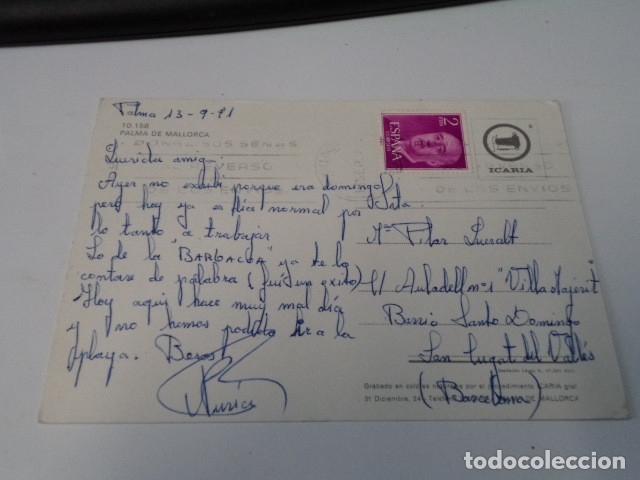 Palma 13-9-91
10.158
PALMA DE MALLORCA
SUS SEÑAS
Querida amiga:
Ayer no escribí porque era domingo
pero hoy ya es día normal por
lo tanto a trabajar
Lo de la "BARBACOA" ya te lo
contaré de palabra (fué un exito)
Hoy aquí hace muy mal día
y no hemos podido ir a la
playa. Besos
Nuria
2
PTAS
ESPAÑA
CORREOS
ICARIA
DE LOS ENVIOS
Srta.
Mª Pilar Queralt
C/ Auladell nº 1 "Villa Majerit"
Barrio Santo Domingo
San Cugat del Vallés
(Barcelona)
Grabado en colores por el procedimiento ICARIA gral
31 Diciembre, 24 DE MALLORCA
todocoleccion.net